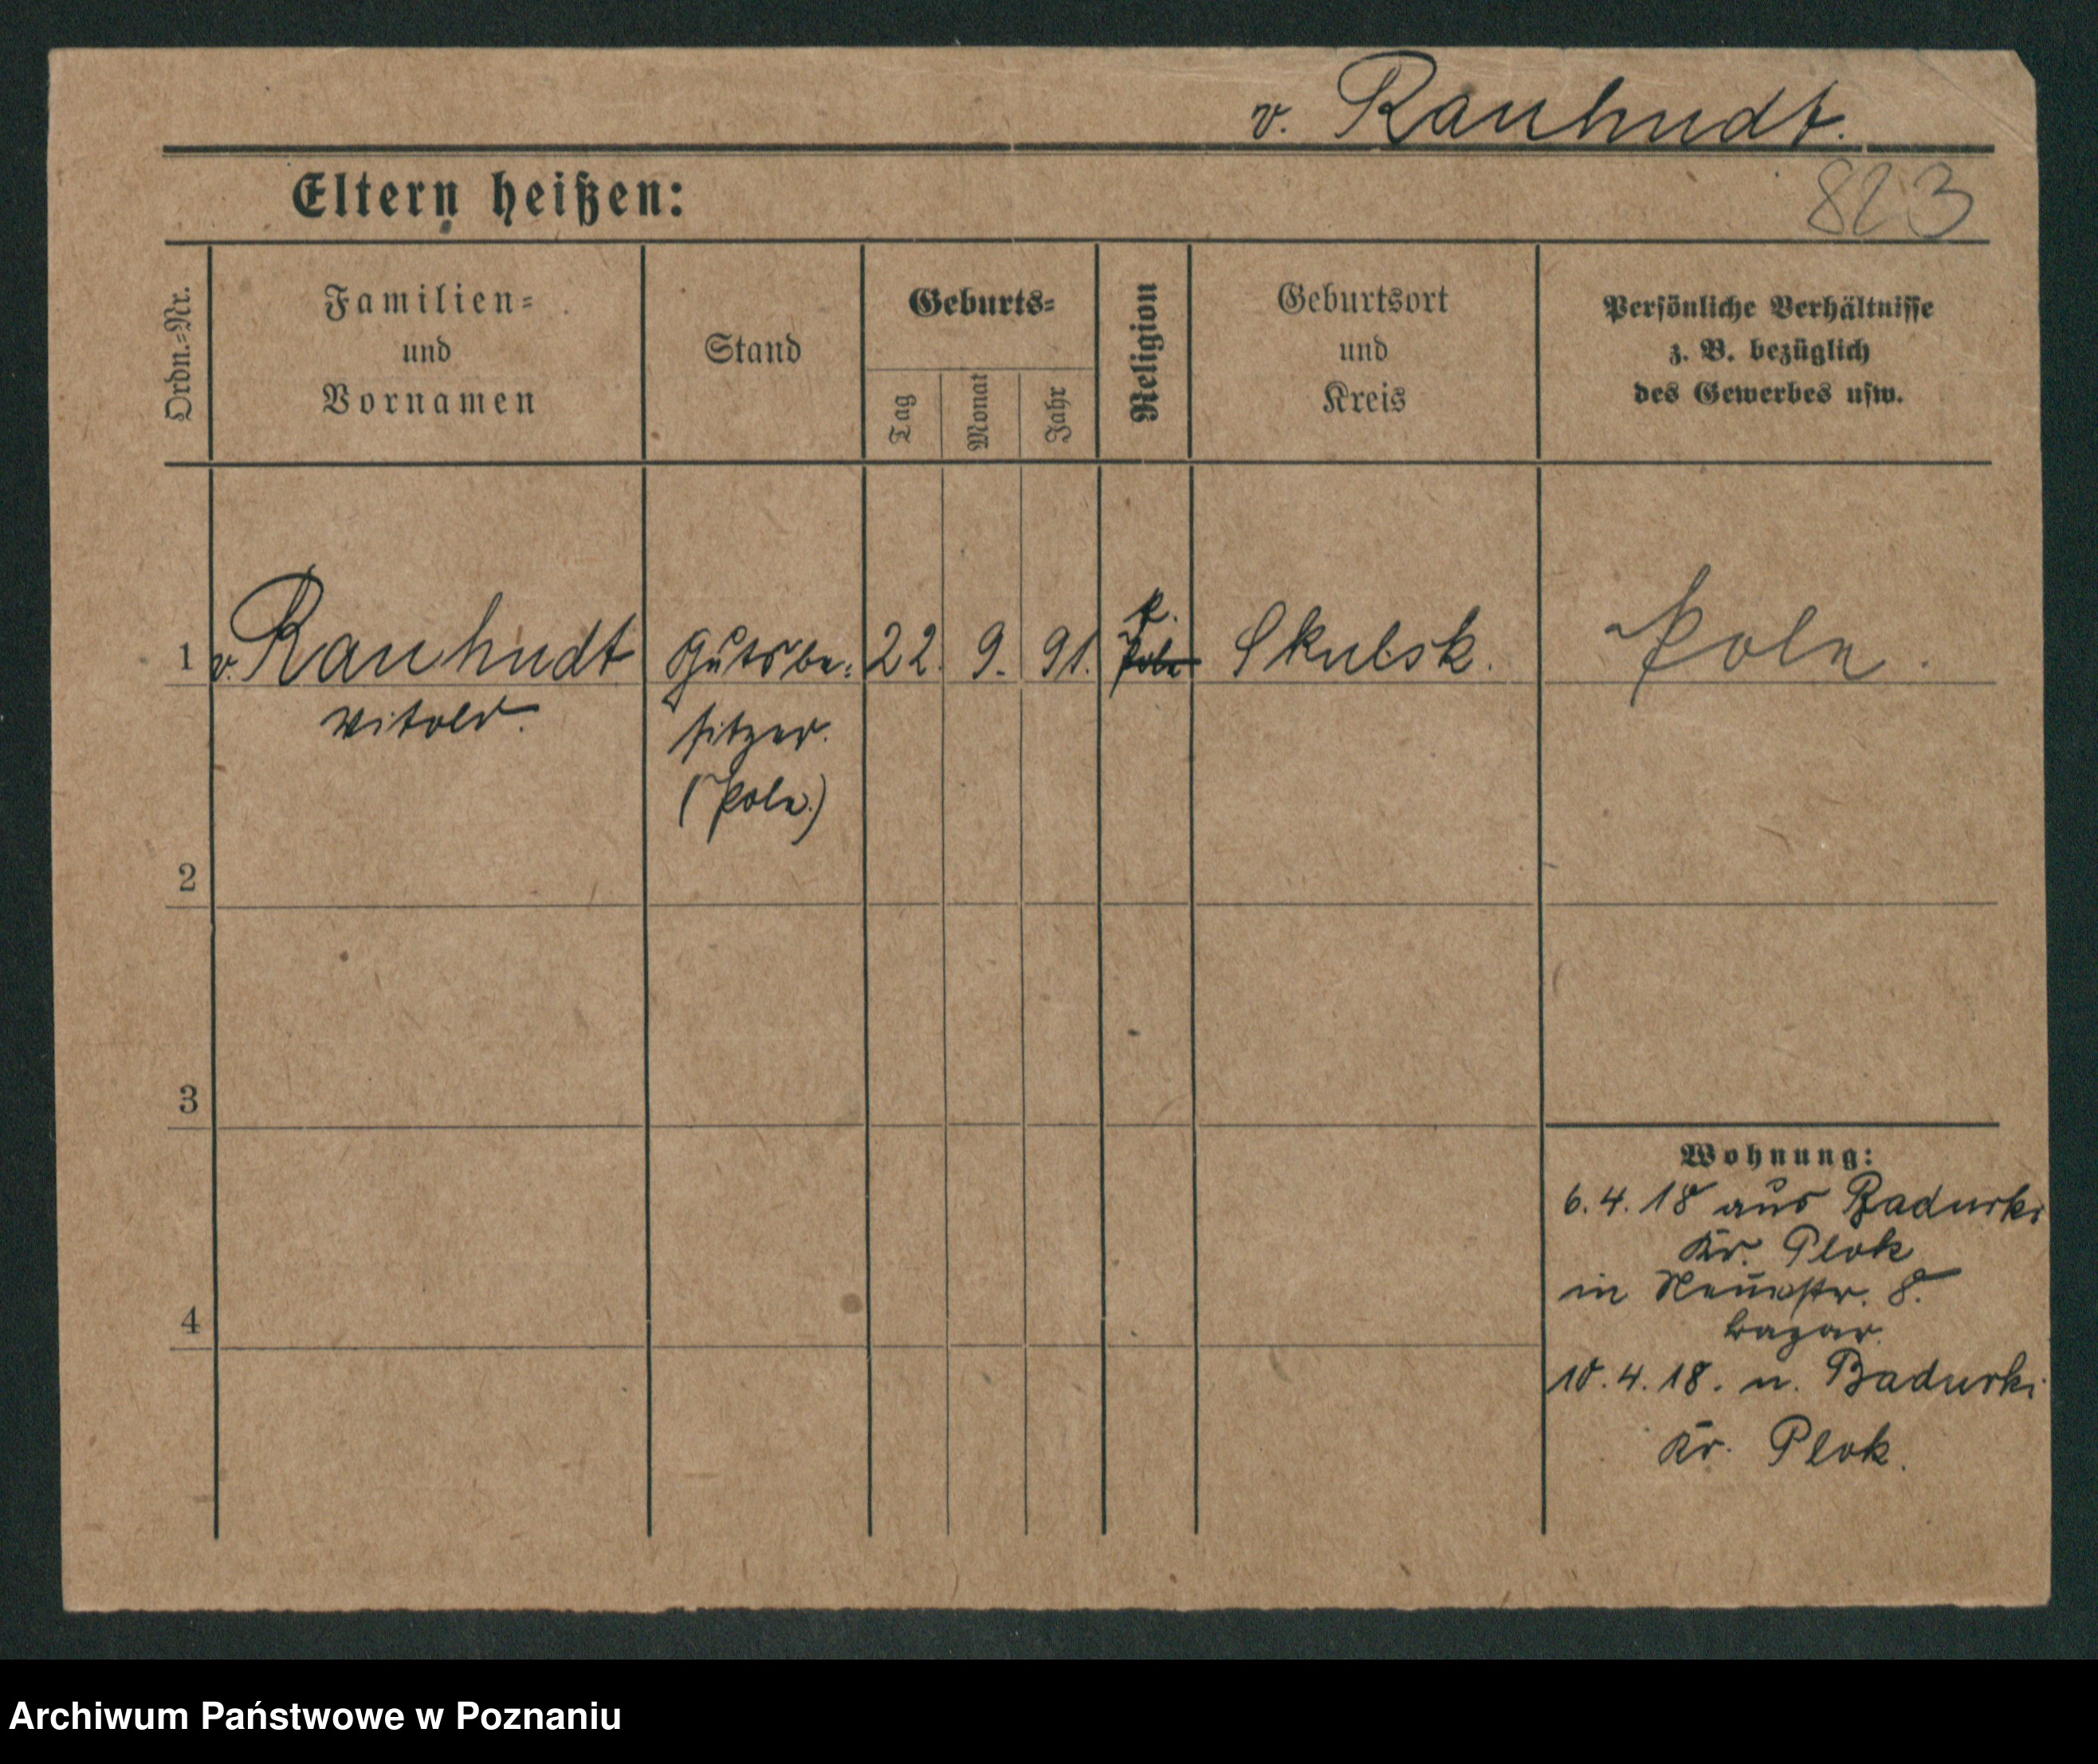 v. Rauhudt.
Eltern heißen:
823
Ordn.-Nr.
Familien-
und
Vornamen
Stand
Geburts-
Tag
Monat
Jahr
Religion
Geburtsort
und
Kreis
Persönliche Verhältnisse
z. B. bezüglich
des Gewerbes usw.
1 v. Rauhudt Gutsbe- 22. 9. 91. k. Skulsk. Pole.
Witold. sitzer.
(Pole.)
2
3
4
Wohnung:
6. 4. 18 aus Badurki
Kr. Plok
in Neuestr. 8.
bazar.
10. 4. 18. n. Badurki
Kr. Plok.
Archiwum Państwowe w Poznaniu